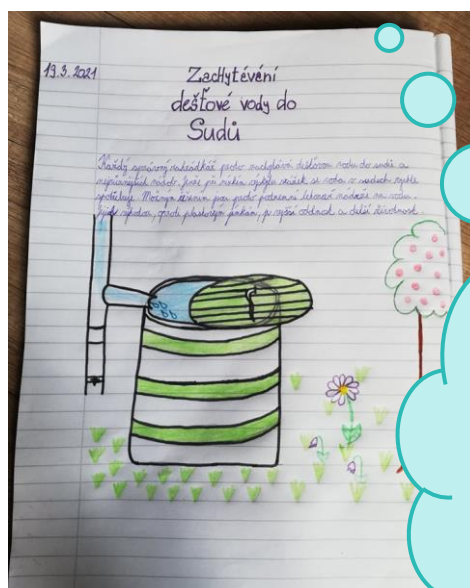 19.3.2021
Zachytévéní
dešťové vody do
Sudů
Každý správný zahrádkář proto zachytává dešťovou vodu do sudů a
nejrůznějších nádob. Jenže při nízkém úhrnu srážek se voda v sudech rychle
spotřebuje. Možným řešením jsou proto podzemní nádrže na vodu.
výhodou, oproti plastovým je vyšší odolnost a delší životnost.